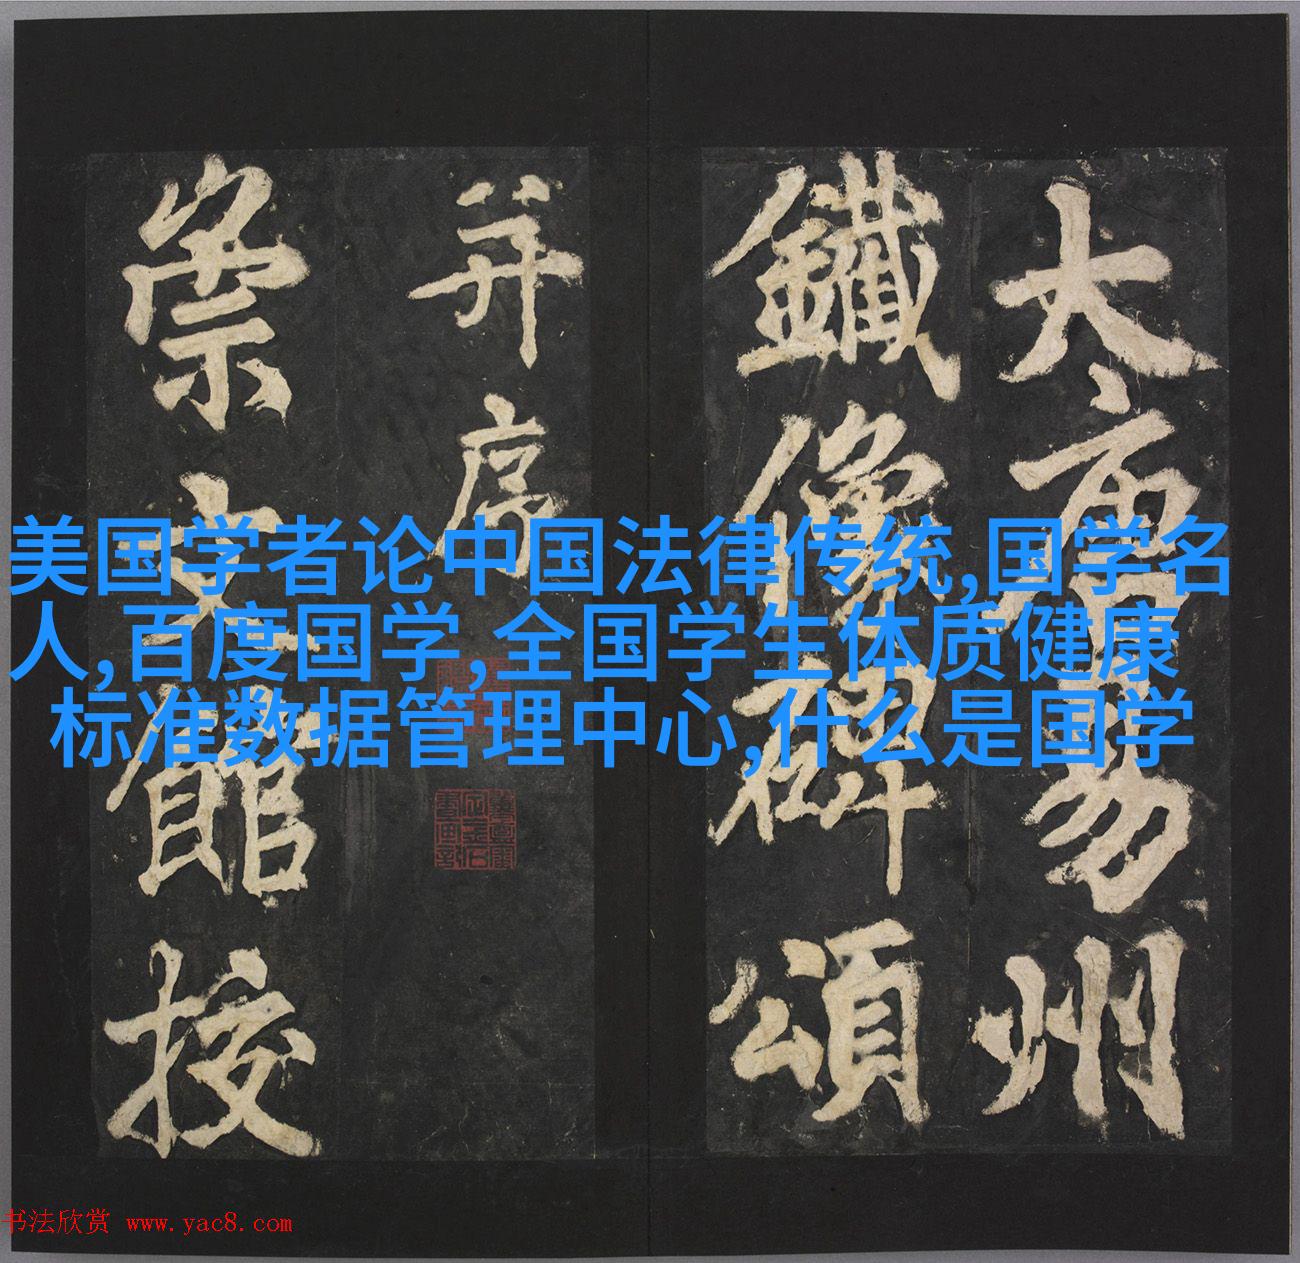 大唐易州
鐵像碑頌
并序
崇文館挍
美国学者论中国法律传统,国学名
人,百度国学,全国学生体质健康
标准数据管理中心,什么是国学
书法欣赏 www.yac8.com